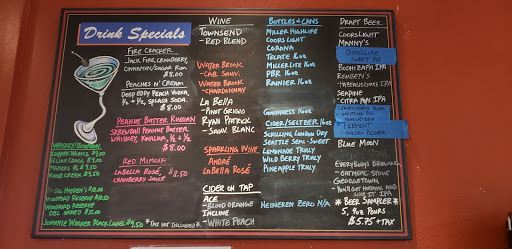 Drink Specials
Fire Cracker
Jack Fire, Cranberry,
Cinnamon/Sugar Rim
$8.00
Peaches N' Cream
Deep Eddy Peach Vodka,
1/2 + 1/2, Splash Soda
$8.00
Peanut Butter Russian
Skrewball Peanut Butter
Whiskey, Kahlua, 1/2 + 1/2
$8.00
Red Mimosa
LaBella Rosé, $8.50
Cranberry Juice
Whiskey/Bourbon
Elijah Craig
Makers
Knob Creek
Woodford Reserve
Woodford Reserve
Dbl Oaked
Johnnie Walker Black Label $9.50
*Tax Not Included*
Wine
Townsend
- Red Blend
Water Brook
- Cab. Sauv.
Water Brook
- Chardonnay
La Bella
- Pinot Grigio
Ryan Patrick
- Sauv. Blanc
Sparkling Wine
André
LaBella Rosé
Cider on Tap
Ace
- Blood Orange
Incline
- White Peach
Bottles + Cans
Miller Highlife
Coors Light
Corona
Tecate 16oz
Miller Lite 16oz
PBR 16oz
Rainier 16oz
Guinness 16oz
Cider/Seltzer 16oz
Schilling London Dry
Seattle Semi-Sweet
Lemonade Truly
Wild Berry Truly
Pineapple Truly
Heineken Zero N/A
Draft Beer
Coors Light
Manny's
Bodhizafa IPA
Reuben's
Seapine
- Citra IPA
Fremont
- Golden Pilsner
Blue Moon
Everybodys Brewing
- Oatmeal Stout
Georgetown
* Beer Sampler *
5, 4oz Pours
$15.75 + Tax